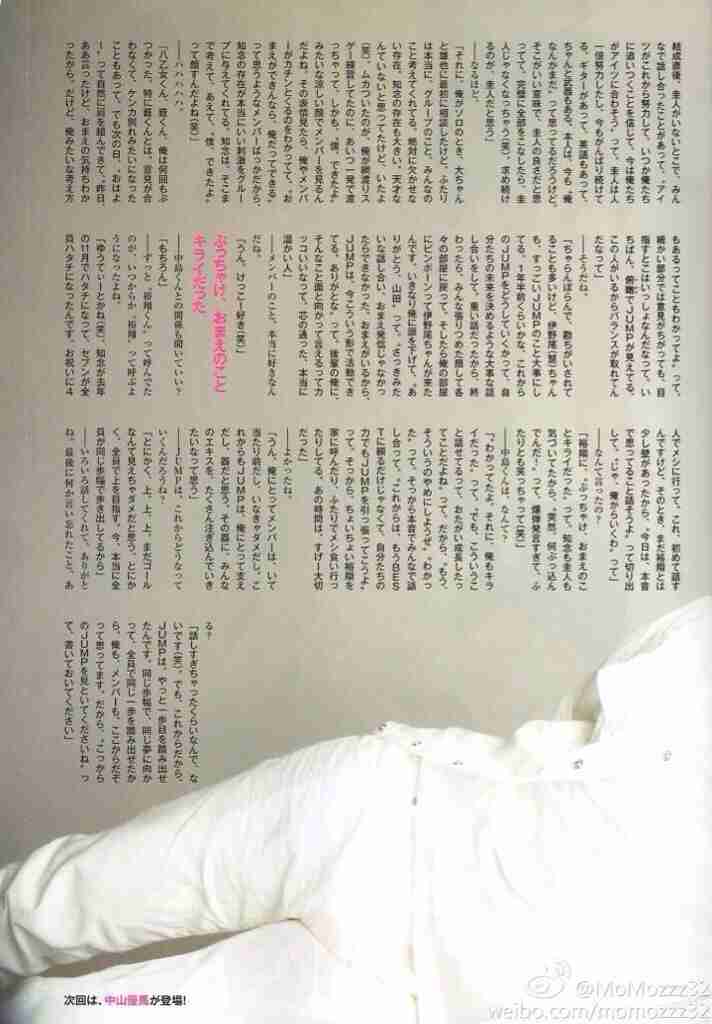 結成直後、圭人がいないとこで、みん
なで話し合ったことがあって、“アイ
ツがこれから努力して、いつか俺たち
に追いつくことを信じて、今は俺たち
がアイツに合わそう”って。圭人は人
一倍努力したし、今もがんばり続けて
る。ギターがあって、英語もあって、
ちゃんと武器もある。本人は、今も“俺
なんかまだ”って思ってるだろうけど、
そこがいい意味で、圭人の良さだと思
ってて。完璧に全部をこなしたら、圭
人じゃなくなっちゃう(笑)。求め続け
るのが、圭人だと思う」
――なるほど。
「それに、俺がソロのとき、大ちゃん
と雄也に最初に相談したけど、ふたり
は本当に、グループのこと、みんなの
こと考えてくれてる。絶対に欠かせな
い存在。知念の存在も大きい。天才な
んていないと思ってたけど、いたよ
(笑)。ムカついたのが、俺が綱渡りス
ゲー練習してたのに、あいつ一発で渡
っちゃって。しかも、“僕、できたよ”
みたいな涼しい顔でメンバーを見るん
だよね。その表情見たら、俺やメンバ
ーがカチンとくるのをわかってて。“お
まえができんなら、俺だってできる”
って思うようなメンバーばっかだから、
知念の存在が本当にいい刺激をグルー
プに与えてくれてる。知念は、そこま
で考えて、あえて、“僕、できたよ”
って顔すんだよね(笑)」
――ハハハハハ。
「八乙女くん、薮くん、俺は何回もぶ
つかった。特に薮くんとは、意見が合
わなくて、ケンカ別れみたいになった
こともあって。でも次の日、“おはよ
ー!”って自然に肩を組んできて。“昨日、
ああ言ったけど、おまえの気持ちわか
ったから。だけど、俺みたいな考え方
もあるってこともわかってよ”って。
細かい部分では意見がちがっても、目
指すとこはいっしょなんだなって。い
ちばん、俯瞰でJUMPが見えてる。
この人がいるからバランスが取れてん
だなって」
――そうだね。
「ちゃらんぽらんで、勘ちがいされて
ることも多いけど、伊野尾(慧)ちゃん
も、すっごいJUMPのこと大事にし
てる。1年半前くらいかな、これから
のJUMPをどうしていくかって、自
分たちの未来を決めるような大事な話
し合いをして。重い話だったから、終
わったら、みんな張りつめた顔して各
々の部屋に戻って。そしたら俺の部屋
にピンポーンって伊野尾ちゃんが来た
んです。いきなり俺に頭を下げて、“あ
りがとう、山田”って。“さっきみた
いな話し合い、おまえ発信じゃなかっ
たらできなかった。おまえがいるから、
JUMPは、今こういう形で活動でき
てる。ありがとな”って。後輩の俺に、
そんなこと面と向かって言えるってカ
ッコいいなって。芯の通った、本当に
温かい人」
――メンバーのこと、本当に好きなん
だね。
「うん。けっこー好き(笑)」
ぶっちゃけ、おまえのこと
キライだった
――中島くんとの関係も聞いていい?
「もちろん」
――ずっと“裕翔くん”って呼んでた
のが、いつからか“裕翔”って呼ぶよ
うになったよね。
「ゆうてぃーとかね(笑)。知念が去年
の11月でハタチになって、セブンが全
員ハタチになったんです。お祝いに4
人でメシに行って。これ、初めて話す
んですけど、そのとき、まだ裕翔とは
少し壁があったから、“今日は、本音
で思ってること話そうよ”って切り出
して。“じゃ、俺からいくわ”って」
――なんて言ったの?
「裕翔に、“ぶっちゃけ、おまえのこ
とキライだった”って。知念も圭人も
気づいてたから、“突然、何ぶっ込ん
でんだ?”って。爆弾発言すぎて、ふ
たりとも笑っちゃって(笑)」
――中島くんは、なんて?
「“わかってたよ。それに、俺もキラ
イだった”って。“でも、こういうこ
と話せてるって、おたがい成長したっ
てことだよね”って。だから、“もう、
そういうのやめにしようぜ”“わかっ
た”って。そっから本音でみんなで話
し合って。“これからは、もうBES
Tに頼るだけじゃなくて、自分たちの
力でもJUMPを引っ張ってこうよ”
って。そっから、ちょいちょい裕翔を
家に呼んだり、ふたりでメシ食い行っ
たりしてる。あの時間は、すげー大切
だった」
――よかったね。
「うん。俺にとってメンバーは、いて
当たり前だし、いなきゃダメだし。こ
れからもJUMPは、俺にとって支え
だし、器だと思う。その器に、みんな
のエキスを、たくさん注ぎ込んでいき
たいなって思う」
――JUMPは、これからどうなって
いくんだろうね?
「とにかく、上、上、上。まだゴール
なんて見えちゃダメだと思う。とにか
く、全員で上を目指す。今、本当に全
員が同じ歩幅で歩き出してるから」
――いろいろ話してくれて、ありがと
ね。最後に何か言い忘れたこと、あ
る?
「話しすぎちゃったくらいなんで、な
いです(笑)。でも、これからだから、
JUMPは。やっと一歩目を踏み出せ
たんです。同じ歩幅で、同じ夢に向か
って、全員で同じ一歩を踏み出せたか
ら。俺も、メンバーも、ここからだぞ
って思ってます。だから、“こっから
のJUMPを見といてくださいね”っ
て、書いておいてください」
次回は、中山優馬が登場!
@MoMozzz32
weibo.com/momozzz32